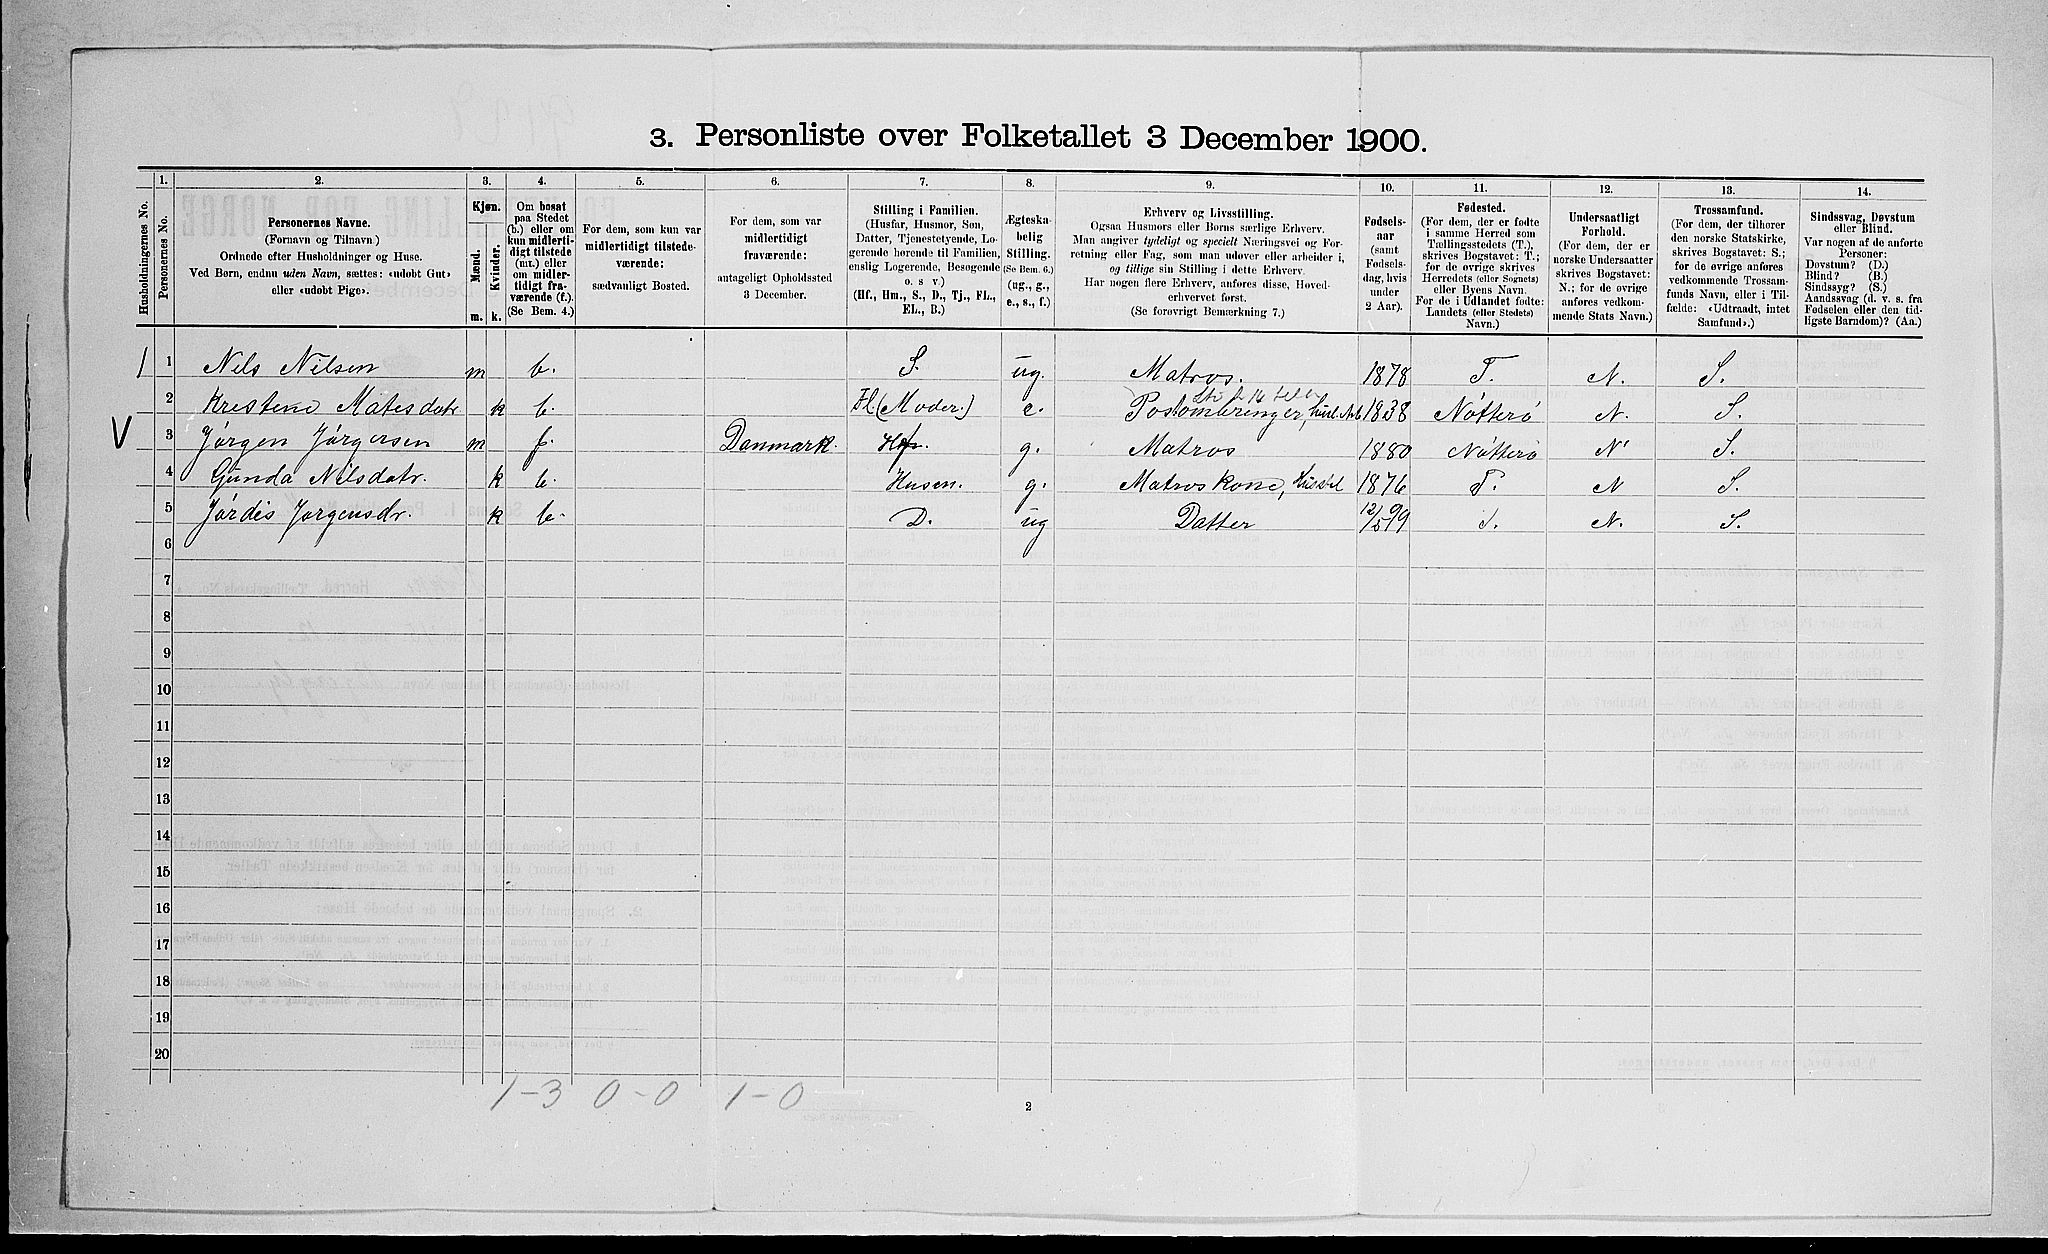 3. Personliste over Folketallet 3 December 1900.
1. 2. 3. 4. 5. 6. 7. 8. 9. 10. 11. 12. 13. 14.
Husholdningernes No.
Personernes No.
Personernes Navne.
(Fornavn og Tilnavn.)
Ordnede efter Husholdninger og Huse.
Ved Børn, endnu uden Navn, sættes: «udøbt Gut»
eller «udøbt Pige».
Kjøn.
Mænd.
Kvinder.
m. k.
Om bosat
paa Stedet
(b.) eller om
kun midlerti-
digt tilstede
(mt.) eller
om midler-
tidigt fra-
værende (f.).
(Se Bem. 4.)
For dem, som kun var
midlertidigt tilstede-
værende:
sædvanligt Bosted.
For dem, som var
midlertidigt
fraværende:
antageligt Opholdssted
3 December.
Stilling i Familien.
(Husfar, Husmor, Søn,
Datter, Tjenestetyende, Lo-
gerende hørende til Familien,
enslig Logerende, Besøgende
o. s v.)
(Hf., Hm., S., D., Tj., FL.,
EL., B.)
Ægteska-
belig
Stilling.
(Se Bem. 6.)
(ug., g.,
e., s., f.)
Erhverv og Livsstilling.
Ogsaa Husmors eller Børns særlige Erhverv.
Man angiver tydeligt og specielt Næringsvei og For-
retning eller Fag, som man udøver eller arbeider i,
og tillige sin Stilling i dette Erhverv.
Har nogen flere Erhverv, anføres disse, Hoved-
erhvervet først.
(Se forøvrigt Bemærkning 7.)
Fødsels-
aar
(samt
Fødsels-
dag, hvis
under
2 Aar).
Fødested.
(For dem, der er fødte
i samme Herred som
Tællingsstedets (T.),
skrives Bogstavet: T.;
for de øvrige skrives
Herredets (eller Sognets)
eller Byens Navn.
For de i Udlandet fødte:
Landets (eller Stedets)
Navn.)
Undersaatligt
Forhold.
(For dem, der er
norske Undersaatter
skrives Bogstavet:
N.; for de øvrige
anføres vedkom-
mende Stats Navn.)
Trossamfund.
(For dem, der tilhører
den norske Statskirke,
skrives Bogstavet: S.;
for de øvrige anføres
vedkommende Trossam-
funds Navn, eller i Til-
fælde: «Udtraadt, intet
Samfund».)
Sindssvag, Døvstum
eller Blind.
Var nogen af de anførte
Personer:
Døvstum? (D.)
Blind? (B.)
Sindssyg? (S.)
Aandssvag (d. v. s. fra
Fødselen eller den tid-
ligste Barndom)? (Aa.)
1 1 Nils Nilsen m b. S. ug. Matros. 1878 T. N. S.
2 Kristene Matesdatr k b. Fl (Moder.) e. Postombringer, 1838 Nøtterø N. S.
V 3 Jørgen Jørgersen m f. Danmark. Hf. g. Matros 1880 Nøtterø N S.
4 Gunda Nilsdatr. k b. Husen. g. Matroskone, Husstel 1876 T. N S.
5 Jørdis Jørgensdr. k b. D. ug Datter 12/5 99 T. N. S.
6
7
8
9
10
11
12
13
14
15
16
17
18
19
20
1-3 0-0 1-0
2